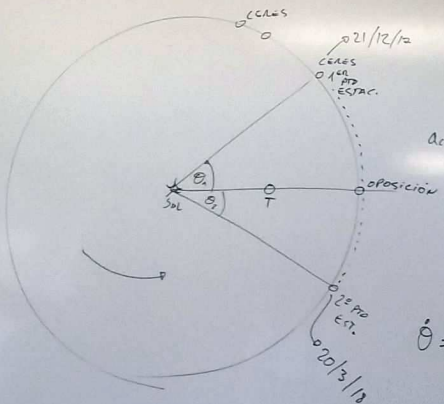 CERES
21/12/17
CERES
1ER
PTO
ESTAC.
θ₁
SOL
θ₂
T
OPOSICIÓN
2º PTO
EST.
20/3/18
θ̇ =